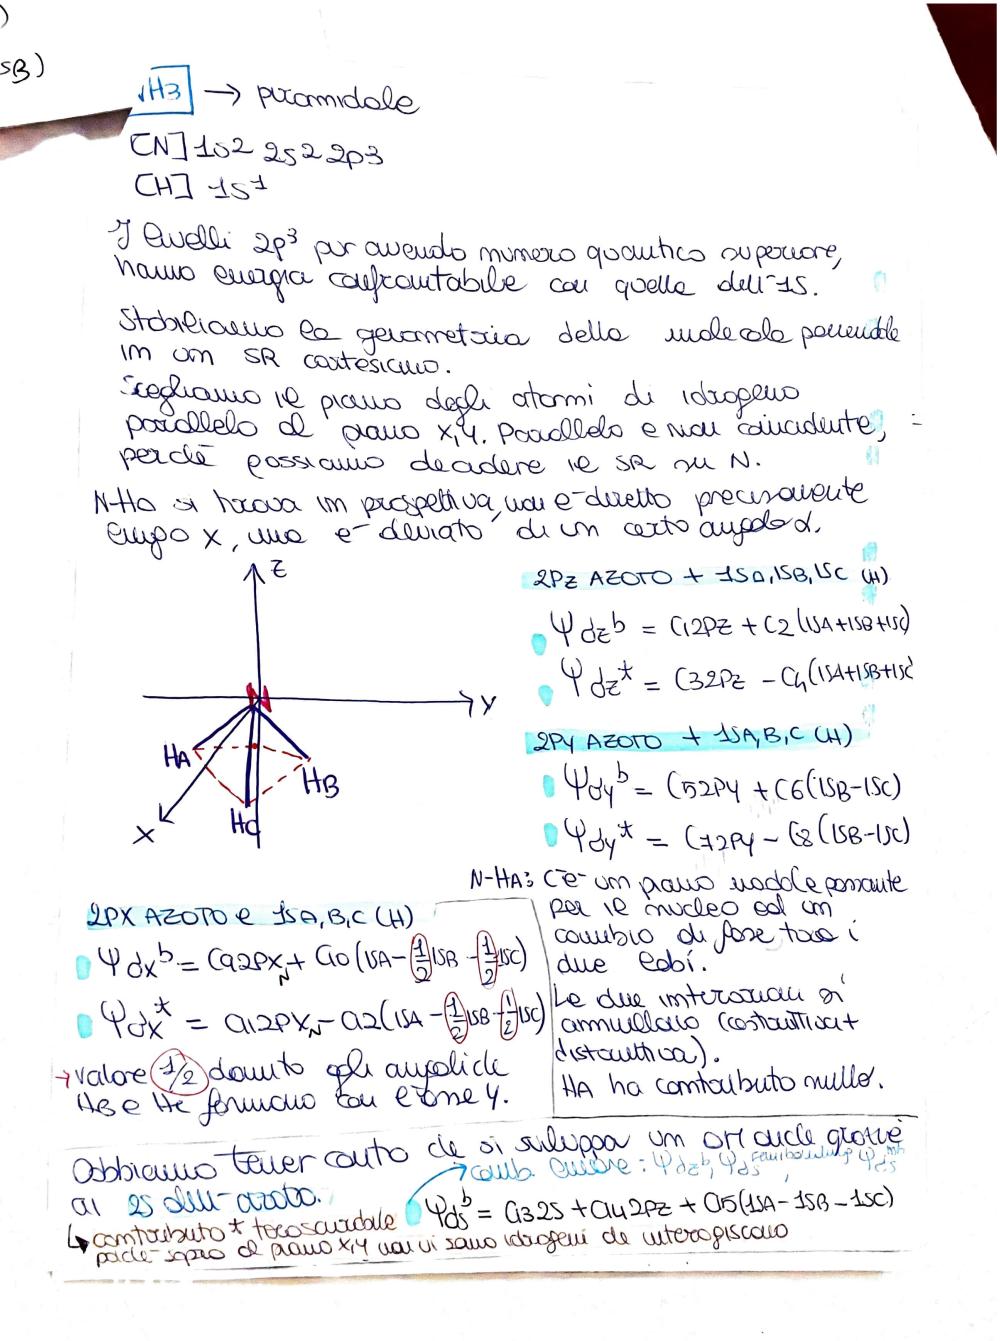 )
SB)
H3 → piramidale
[N] 1s2 2s2 2p3
[H] 1s1
I livelli 2p³ pur avendo numero quantico superiore,
hanno energia confrontabile con quella dell'1s.
Stabiliamo la geometria della molecola ponendola
in un SR cartesiano.
Scegliamo il piano degli atomi di idrogeno
parallelo al piano x,y. Parallelo e non coincidente,
perchè possiamo decidere il SR su N.
N-Ha si trova in prospettiva, non è diretto precisamente
lungo x, ma è deviato di un certo angolo α.
Z
Y
X
N
HA
HB
HC
2PZ AZOTO + 1SA,1SB,1SC (H)
Ψdzᵇ = C12PZ + C2(1SA+1SB+1SC)
Ψdz* = C32PZ - C4(1SA+1SB+1SC
2PY AZOTO + 1SA,B,C (H)
Ψdyᵇ = C52PY + C6(1SB-1SC)
Ψdy* = C72PY - C8(1SB-1SC)
N-HA: C'è un piano nodale passante
per il nucleo ed un
cambio di fase tra i
due lobi.
Le due interazioni si
annullano (costruttiva+
distruttiva).
HA ha contributo nullo.
2PX AZOTO e 1SA,B,C (H)
Ψdxᵇ = C92PXN + C10(1SA-1/2 1SB - 1/2 1SC)
Ψdx* = a12PXN - a2(1SA - 1/2 1SB - 1/2 1SC)
→ valore 1/2 dovuto agli angoli che
HB e Hc formano con l'asse y.
Dobbiamo tener conto che si sviluppa un OM anche grazie
al 2s dell'azoto.
comb. lineare: Ψdzᵇ, Ψds
Ψdsᵇ = C132S + C142PZ + C15(1SA-1SB-1SC)
↳ contributo * trascurabile
perchè sopra al piano x,y non vi sono idrogeni che interagiscono